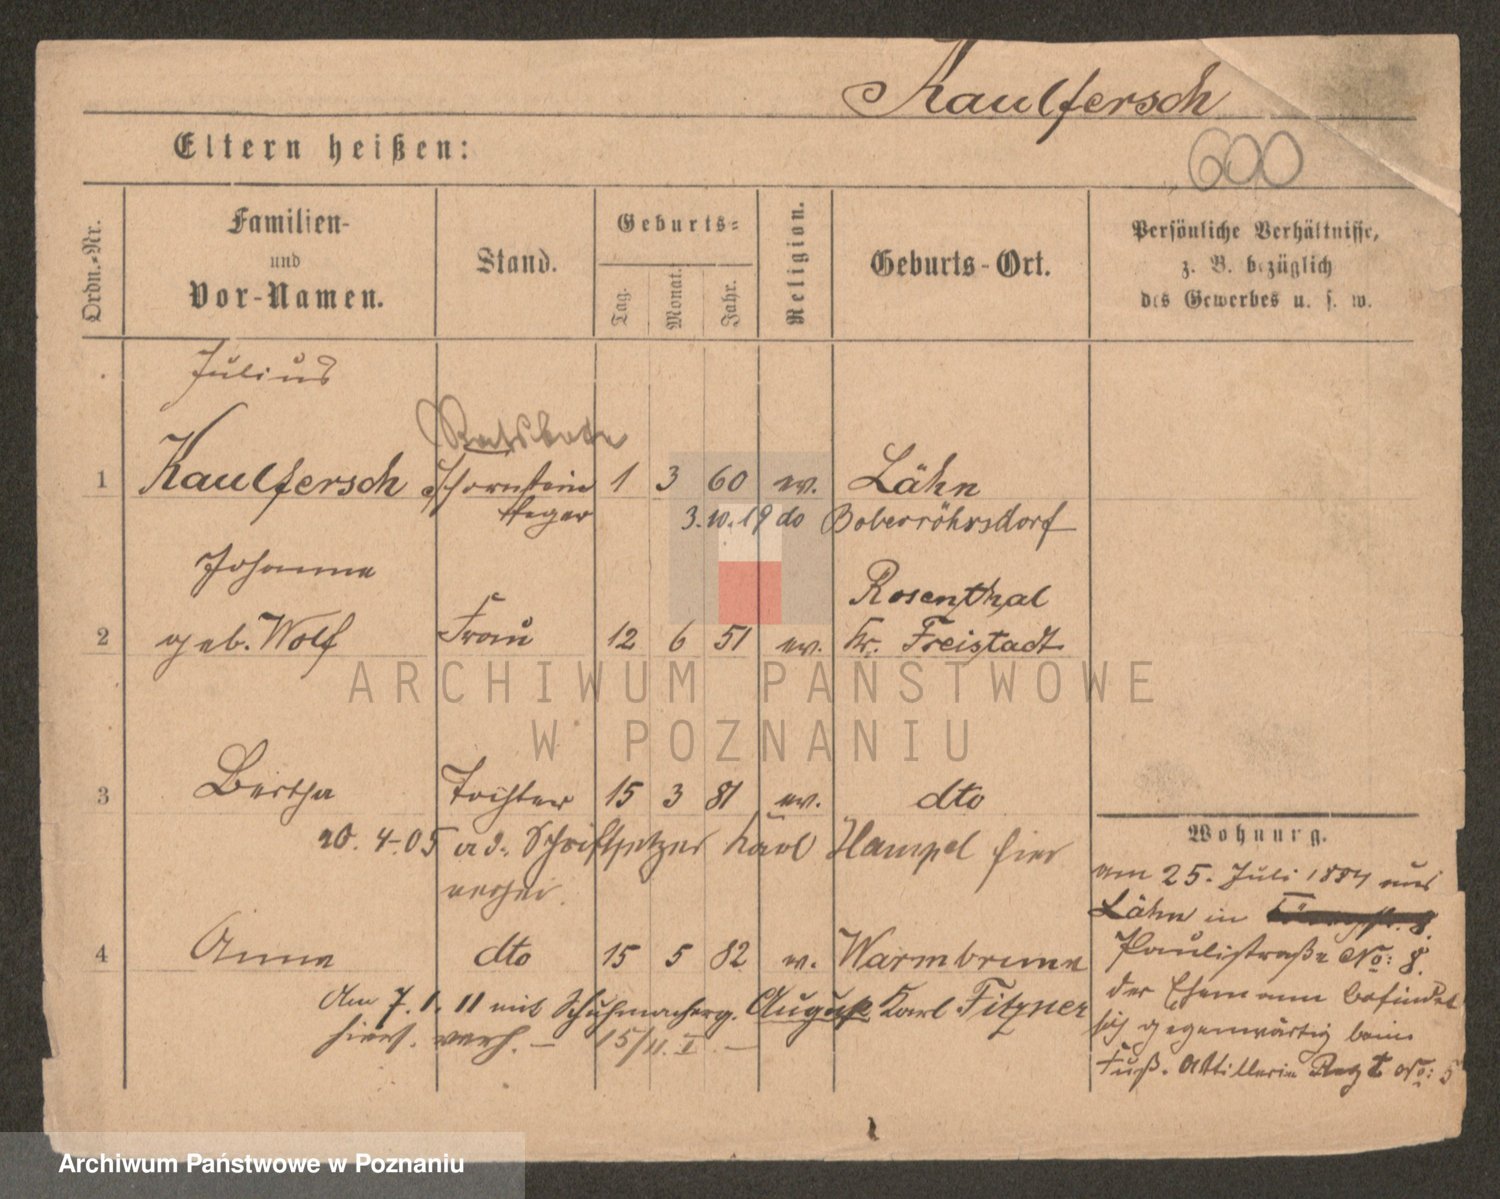 Kaulfersch
Eltern heißen:
600
Ordn.-Nr.
Familien-
und
Vor-Namen.
Stand.
Geburts-
Tag.
Monat.
Jahr.
Religion.
Geburts-Ort.
Persönliche Verhältnisse,
z. B. bezüglich
des Gewerbes u. s. w.
Julius
Ratsbote
1 Kaulfersch Schornstein 1 3 60 ev. Lähn
feger 3.10.19 do Boberröhrsdorf
Johanna
Rosenthal
2 geb. Wolf Frau 12 6 51 ev. Kr. Freistadt
ARCHIWUM PAŃSTWOWE
W POZNANIU
3 Bertha Tochter 15 3 81 ev. dto
20. 4. 05 a. d. Schriftsetzer Karl Hampel hier
verhei.
4 Anna dto 15 5 82 ev. Warmbrunn
Am 7. 1. 11 mit Schuhmacherg. August Karl Fitzner
hiers. verh. — 15/11. I. —
Wohnung.
am 25. Juli 1884 aus
Lähn in
Paulistraße No: 8.
der Ehemann befindet
sich gegenwärtig beim
Fuß. Artillerie Regt No: 5
Archiwum Państwowe w Poznaniu